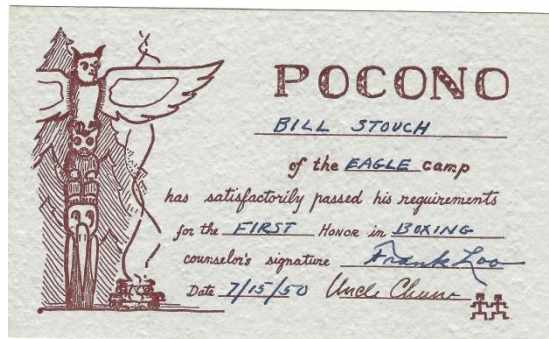 POCONO
BILL STOUCH
of the EAGLE camp
has satisfactorily passed his requirements
for the FIRST HONOR in BOXING
counselor's signature Frank Loo
Date 7/15/50 Uncle